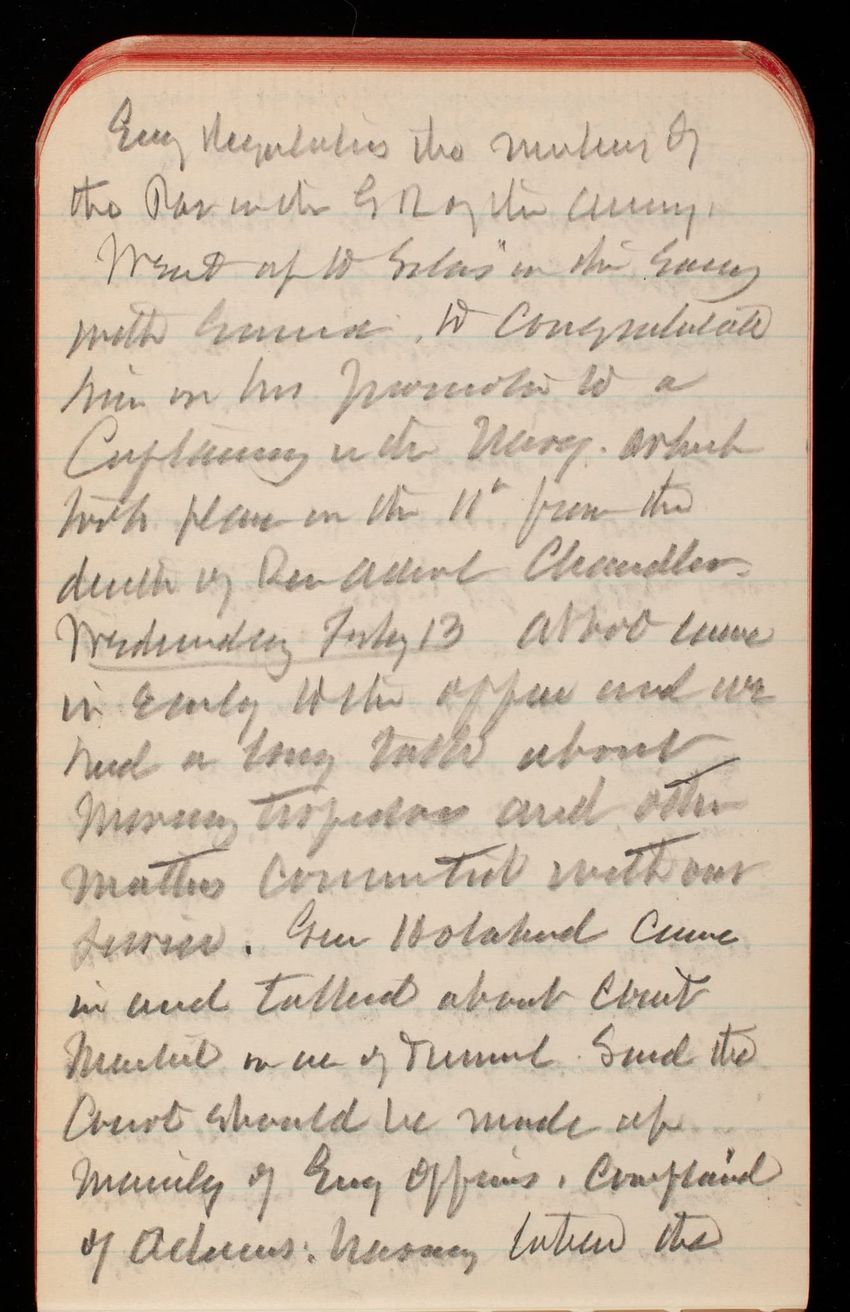 Eng Regulations the making of
the Par in the G R of the Army.
Went up to Silas' in the Evening
with Emma, to Congratulate
him on his promotion to a
Captaincy in the Navy. which
took place on the 11th from the
death of Rear Adml Chandler.
Wednesday Feby 13 Abbot came
in early to the office and we
had a long talk about
torpedoes and other
matters connected with our
service. Gen Holabird came
in and talked about Court
Martial in case of. Said the
Court should be made up
mainly of Eng Officers. Complained
of Adams. having taken the